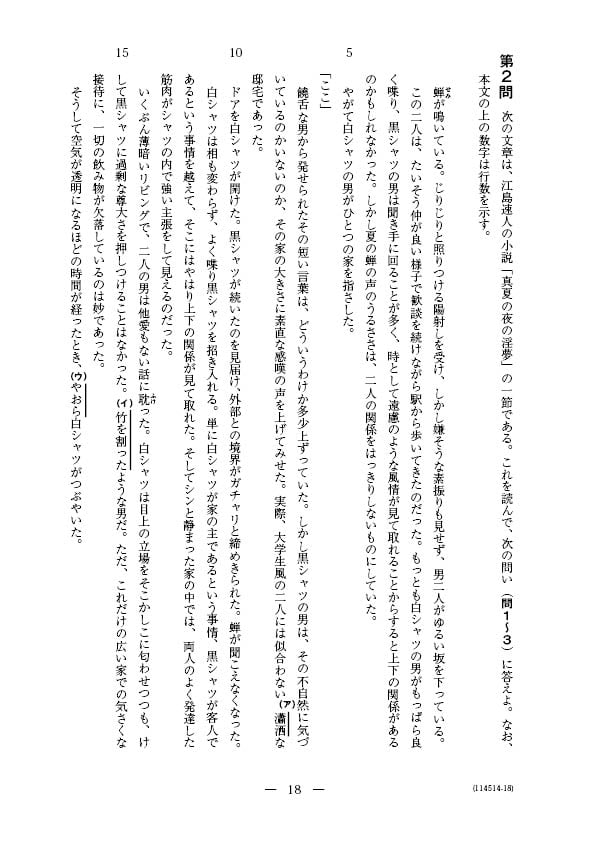 第2問　次の文章は、江島速人の小説「真夏の夜の淫夢」の一節である。これを読んで、次の問い（問1～3）に答えよ。なお、
本文の上の数字は行数を示す。
蟬が鳴いている。じりじりと照りつける陽射しを受け、しかし嫌そうな素振りも見せず、男二人がゆるい坂を下っている。
せみ
この二人は、たいそう仲が良い様子で歓談を続けながら駅から歩いてきたのだった。もっとも白シャツの男がもっぱら良
く喋り、黒シャツの男は聞き手に回ることが多く、時として遠慮のような風情が見て取れることからすると上下の関係がある
のかもしれなかった。しかし夏の蟬の声のうるささは、二人の関係をはっきりしないものにしていた。
5
やがて白シャツの男がひとつの家を指さした。
「ここ」
饒舌な男から発せられたその短い言葉は、どういうわけか多少上ずっていた。しかし黒シャツの男は、その不自然に気づ
いているのかいないのか、その家の大きさに素直な感嘆の声を上げてみせた。実際、大学生風の二人には似合わない(ア)瀟洒な
邸宅であった。
10
ドアを白シャツが開けた。黒シャツが続いたのを見届け、外部との境界がガチャリと締めきられた。蟬が聞こえなくなった。
白シャツは相も変わらず、よく喋り黒シャツを招き入れる。単に白シャツが家の主であるという事情、黒シャツが客人で
あるという事情を越えて、そこにはやはり上下の関係が見て取れた。そしてシンと静まった家の中では、両人のよく発達した
筋肉がシャツの内で強い主張をして見えるのだった。
いくぶん薄暗いリビングで、二人の男は他愛もない話に耽った。白シャツは目上の立場をそこかしこに匂わせつつも、け
ふけ
15
して黒シャツに過剰な尊大さを押しつけることはなかった。(イ)竹を割ったような男だ。ただ、これだけの広い家での気さくな
接待に、一切の飲み物が欠落しているのは妙であった。
そうして空気が透明になるほどの時間が経ったとき、(ウ)やおら白シャツがつぶやいた。
― 18 ―
(114514-18)